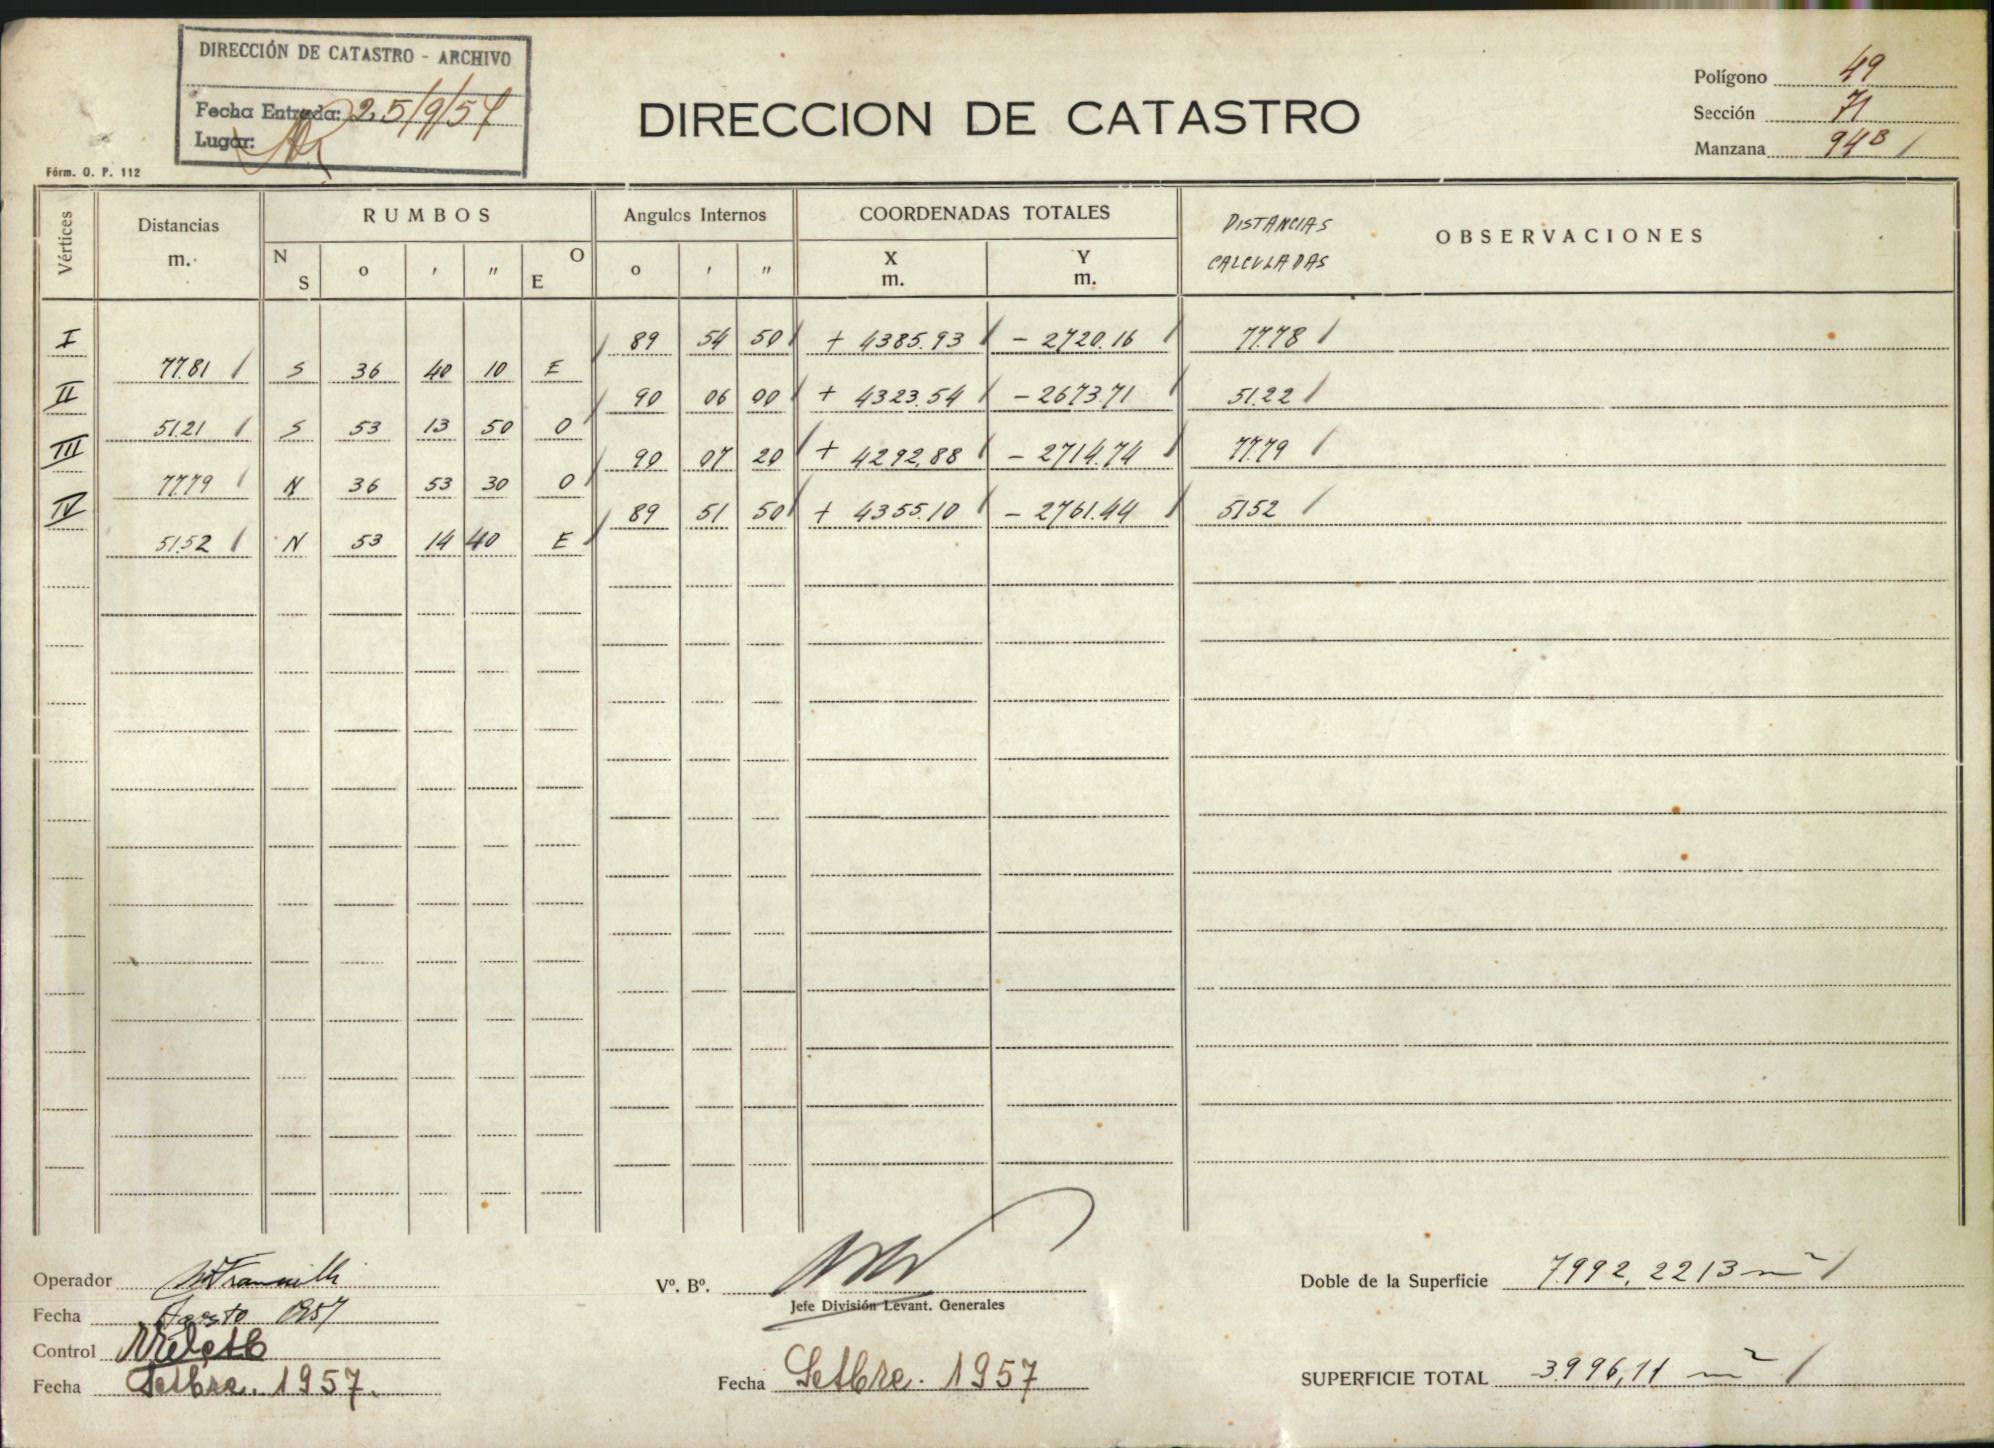 DIRECCIÓN DE CATASTRO - ARCHIVO
Fecha Entrada: 25/9/57
Lugar:
Fórm. O. P. 112
DIRECCION DE CATASTRO
Polígono 49
Sección 71
Manzana 94B /
Vértices Distancias m. RUMBOS Angulos Internos COORDENADAS TOTALES DISTANCIAS CALCULADAS OBSERVACIONES
N S o ' " O E o ' " X m. Y m.
I 89 54 50 + 4385.93 - 2720.16 77.78
77.81 S 36 40 10 E
II 90 06 00 + 4323.54 - 2673.71 51.22
51.21 S 53 13 50 O
III 90 07 20 + 4292,88 - 2714.74 77.79
77.79 N 36 53 30 O
IV 89 51 50 + 4355.10 - 2761.44 51.52
51.52 N 53 14 40 E
Operador
Fecha Agosto 1957
Control
Fecha Setbre. 1957.
Vº. Bº.
Jefe División Levant. Generales
Fecha Setbre. 1957
Doble de la Superficie 7.992,2213 m² /
SUPERFICIE TOTAL 3.996,11 m² /